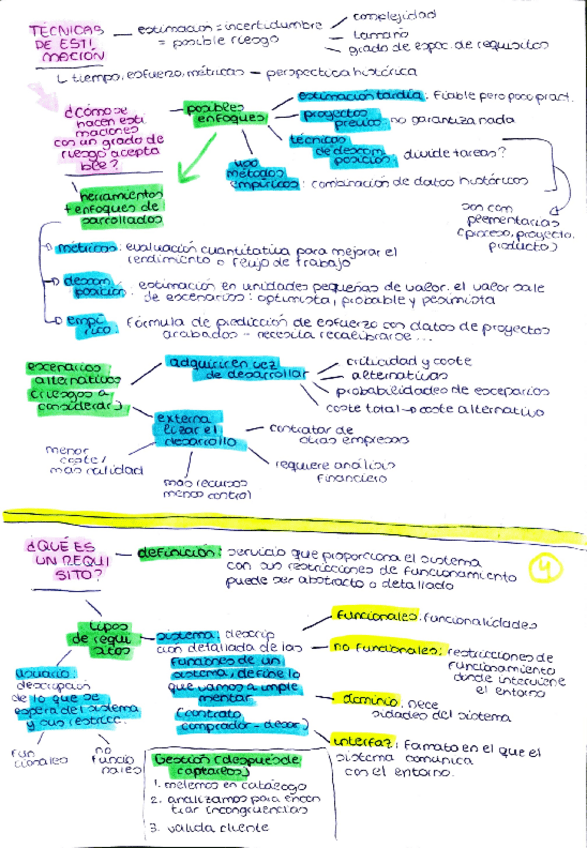 TÉCNICAS
DE ESTI
MACIÓN
estimación = incertidumbre
= posible riesgo
complejidad
tamaño
grado de espec. de requisitos
tiempo, esfuerzo, métricas - perspectiva histórica
¿Cómo se
hacen esti
maciones
con un grado de
riesgo acepta
ble?
posibles
enfoques
estimación tardía: Fiable pero poco pract.
proyectos
previos: no garantiza nada
técnicas
de descom
posición: divide tareas?
uso
métodos
empíricos: combinación de datos históricos
son com
plementarias
(proceso, proyecto,
producto)
herramientas
+ enfoques de
sarrollados
métricas: evaluación cuantitativa para mejorar el
rendimiento o flujo de trabajo
descom
posición: estimación en unidades pequeñas de valor. el valor sale
de escenarios: optimista, probable y pesimista
empí
rico: Fórmula de predicción de esfuerzo con datos de proyectos
acabados - necesita recalibrarse...
escenarios
alternativos
(riesgos a
considerar)
adquirir en vez
de desarrollar
criticidad y coste
alternativas
probabilidades de escenarios
coste total → coste alternativo
externa
lizar el
desarrollo
contratar de
otras empresas
menor
coste /
más calidad
más recursos
menos control
requiere análisis
financiero
¿QUÉ ES
UN REQUI
SITO?
definición: servicio que proporciona el sistema
con sus restricciones de funcionamiento
puede ser abstracto o detallado
4
tipos
de requi
sitos
usuario:
descripción
de lo que se
espera del sistema
y sus restricc.
fun
cionales
no
funcio
nales
sistema: descrip
ción detallada de las
funciones de un
sistema, define lo
que vamos a imple
mentar
(contrato
comprador-desar)
funcionales: funcionalidades
no funcionales: restricciones de
funcionamiento
donde interviene
el entorno
dominio: nece
sidades del sistema
interfaz: Formato en el que el
sistema comunica
con el entorno.
Gestión (después de
captarlos)
1. metemos en catálogo
2. analizamos para encon
trar incongruencias
3. valida cliente